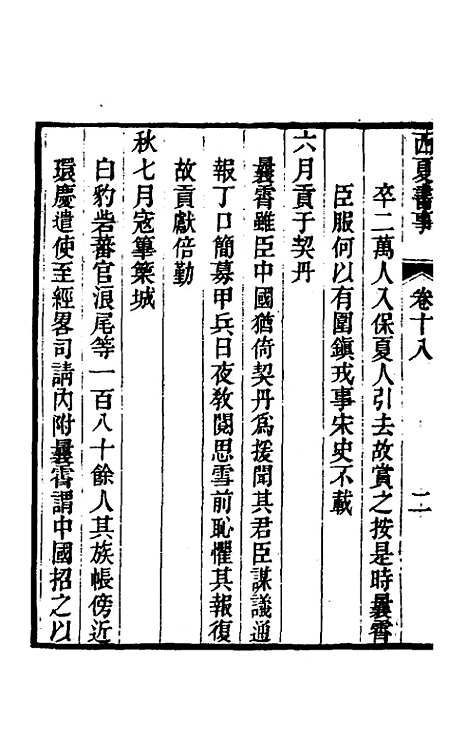 西夏書事 卷十八 二
卒二萬人入保夏人引去故賞之按是時曩霄
臣服何以有圍鎮戎事宋史不載
六月貢于契丹
曩霄雖臣中國猶倚契丹爲援聞其君臣謀議通
報丁口簡募甲兵日夜敎閱思雪前恥懼其報復
故貢獻倍勤
秋七月寇篳篥城
白豹砦蕃官浪尾等一百八十餘人其族帳傍近
環慶遣使至經畧司請內附曩霄謂中國招之以